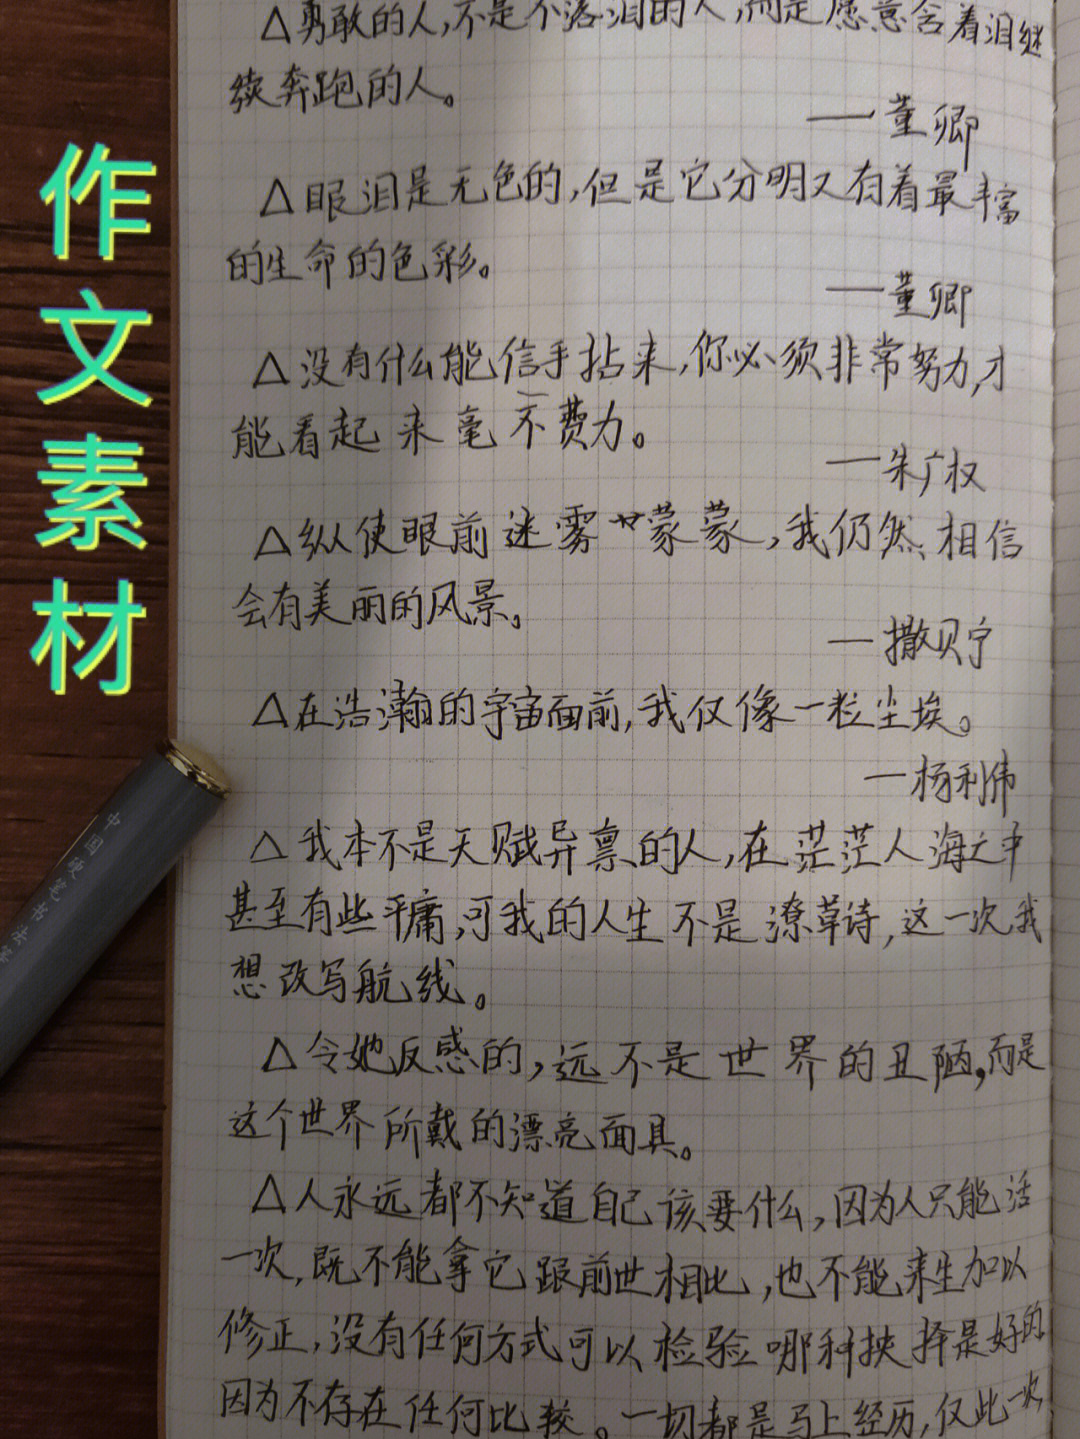 作文素材
△勇敢的人,不是不落泪的人,而是愿意含着泪继
续奔跑的人。
——董卿
△眼泪是无色的,但是它分明又有着最丰富
的生命的色彩。
——董卿
△没有什么能信手拈来,你必须非常努力,才
能看起来毫不费力。
——朱广权
△纵使眼前迷雾蒙蒙,我仍然相信
会有美丽的风景。
——撒贝宁
△在浩瀚的宇宙面前,我仅像一粒尘埃。
——杨利伟
△我本不是天赋异禀的人,在茫茫人海之中
甚至有些平庸,可我的人生不是潦草诗,这一次我
想改写航线。
△令她反感的,远不是世界的丑陋,而是
这个世界所戴的漂亮面具。
△人永远都不知道自己该要什么,因为人只能活
一次,既不能拿它跟前世相比,也不能来生加以
修正,没有任何方式可以检验哪种抉择是好的
因为不存在任何比较。一切都是马上经历,仅此一次
中国硬笔书法